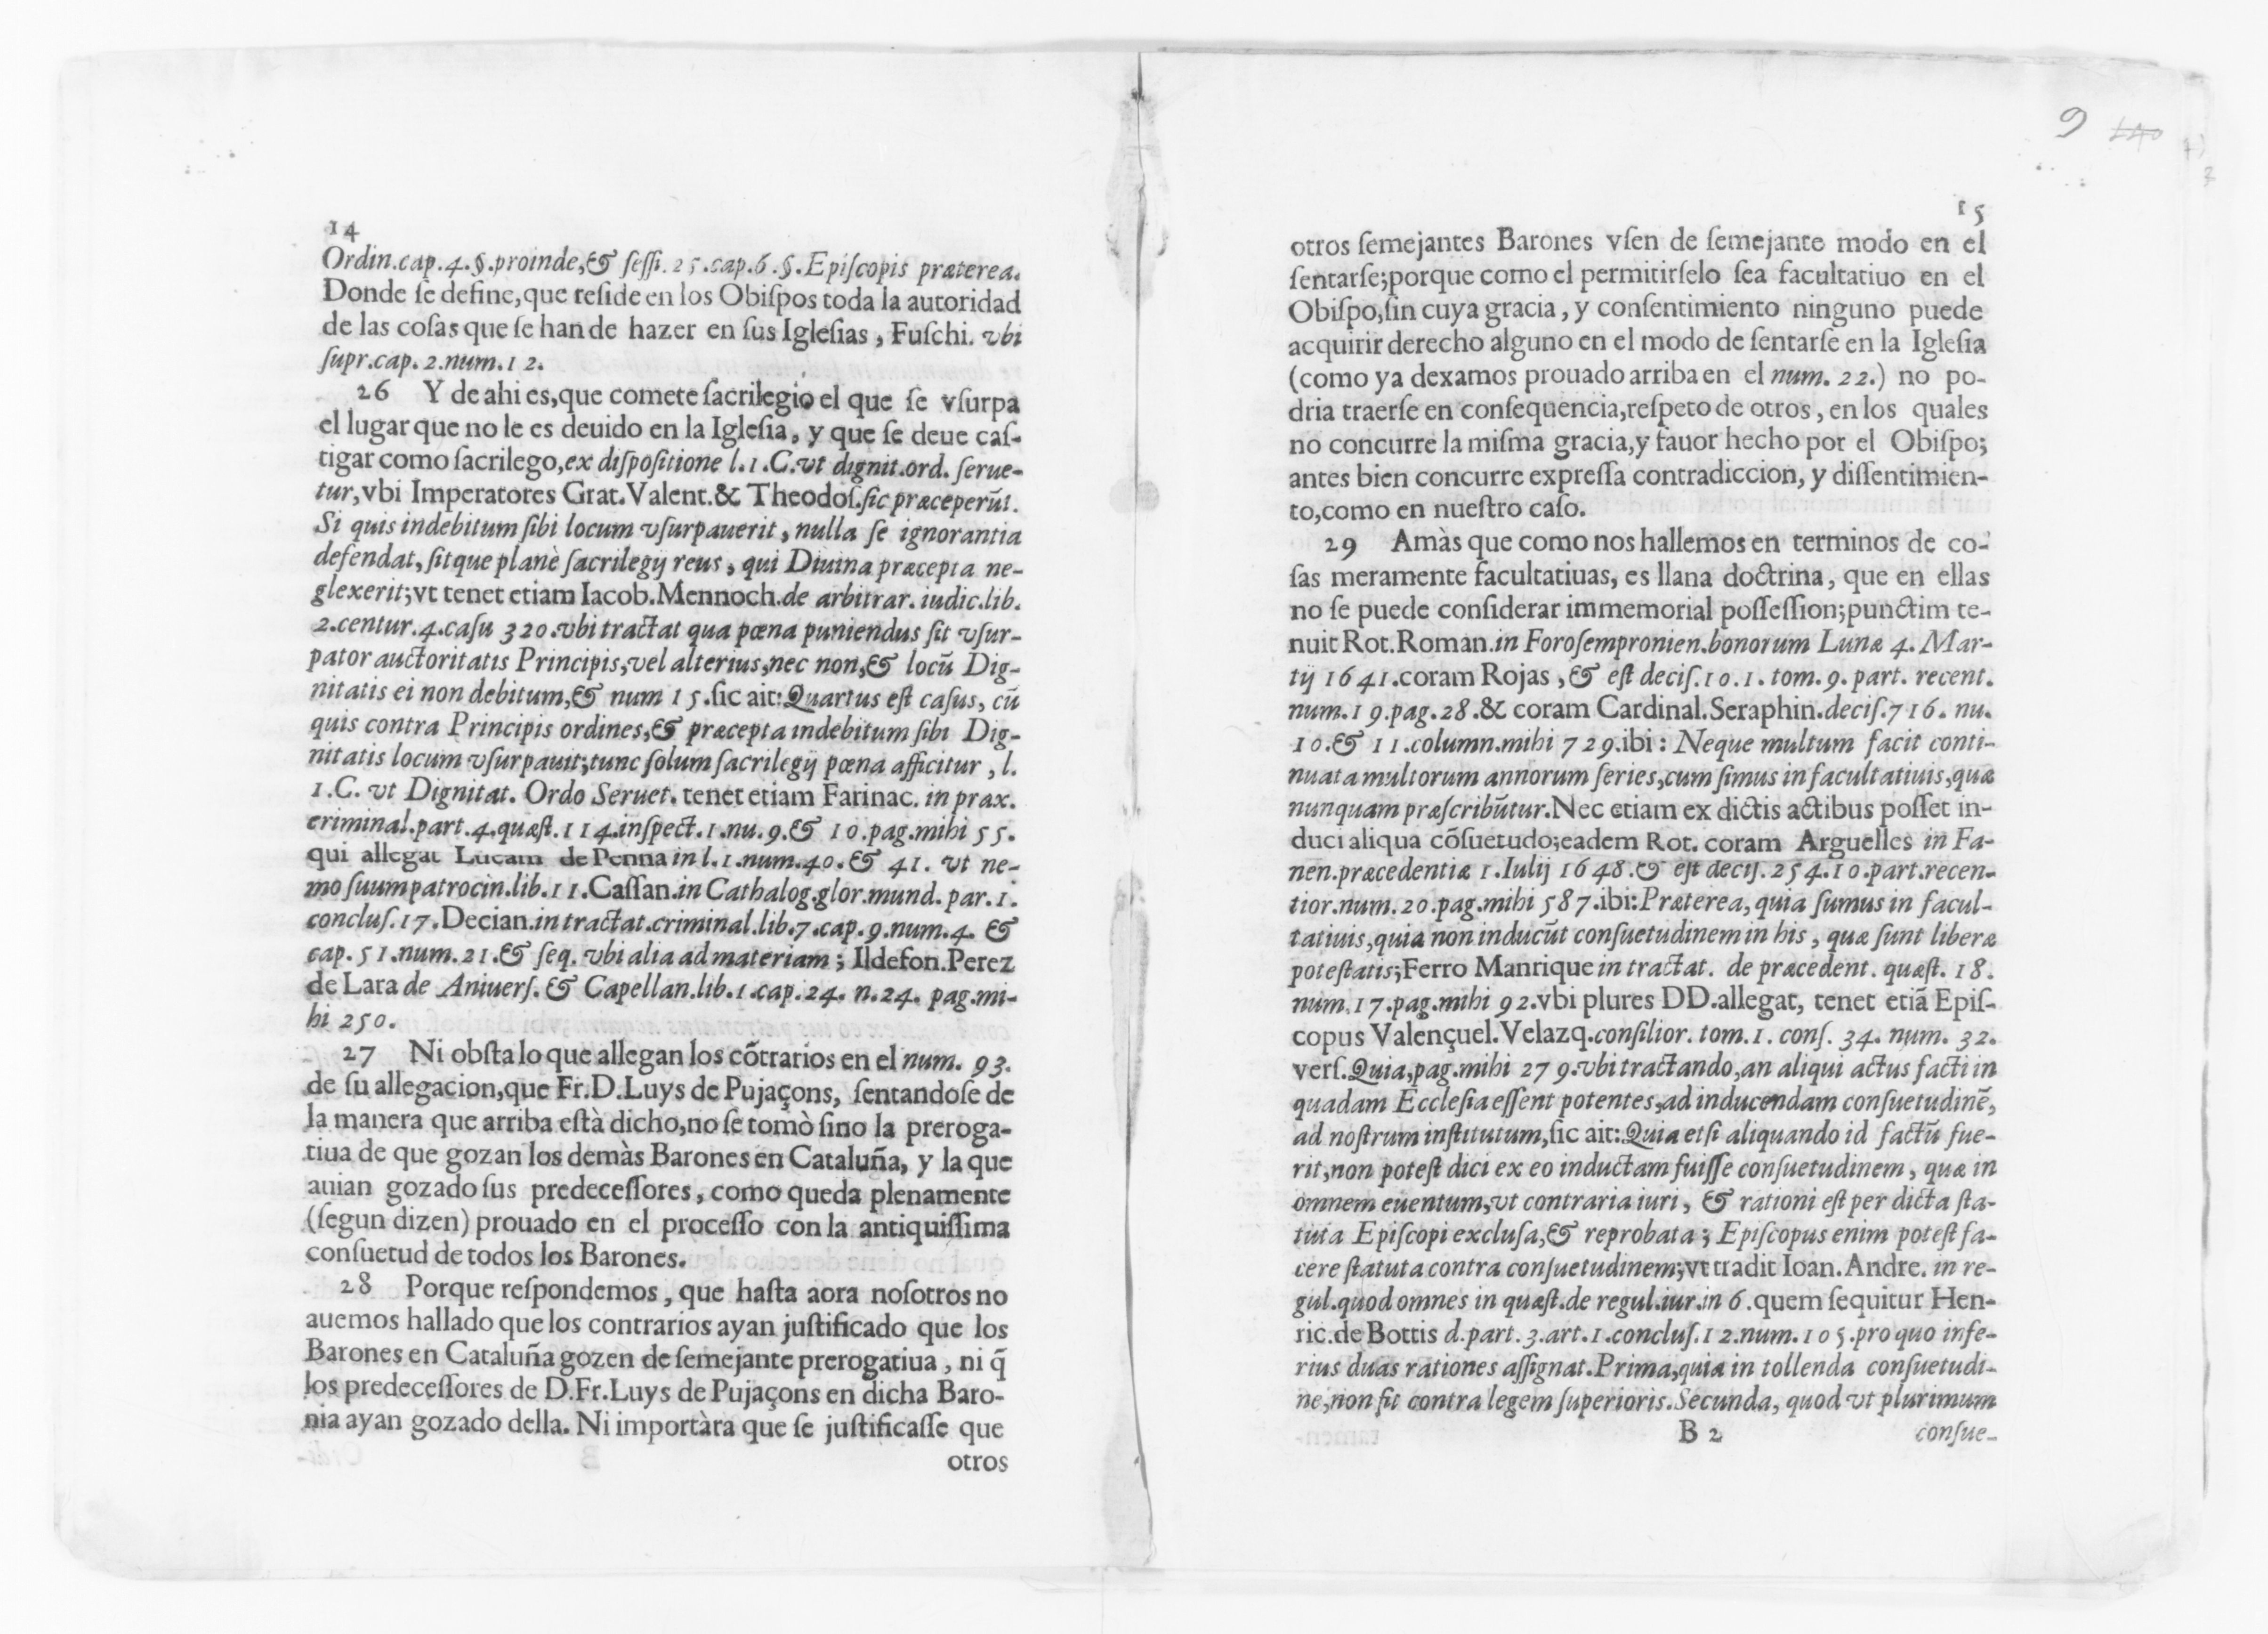 14
Ordin.cap.4.§.proinde,& ſeſſi.25.cap.6.§.Epiſcopis præterea.
Donde ſe define,que reſide en los Obiſpos toda la autoridad
de las coſas que ſe han de hazer en ſus Igleſias, Fuſchi. vbi
ſupr.cap.2.num.12.
26 Y de ahi es,que comete ſacrilegio el que ſe vſurpa
el lugar que no le es deuido en la Igleſia, y que ſe deue caſ-
tigar como ſacrilego,ex diſpoſitione l.1.C.vt dignit.ord. ſerue-
tur,vbi Imperatores Grat.Valent.& Theodoſ.ſic præceperũt.
Si quis indebitum ſibi locum vſurpauerit, nulla ſe ignorantia
defendat, ſitque planè ſacrilegij reus, qui Diuina præcepta ne-
glexerit;vt tenet etiam Iacob.Mennoch.de arbitrar. iudic.lib.
2.centur.4.caſu 320.vbi tractat qua pœna puniendus ſit vſur-
pator auctoritatis Principis,vel alterius,nec non,& locũ Dig-
nitatis ei non debitum,& num 15.ſic ait:Quartus eſt caſus, cũ
quis contra Principis ordines,& præcepta indebitum ſibi Dig-
nitatis locum vſurpauit;tunc ſolum ſacrilegij pœna afficitur, l.
1.C. vt Dignitat. Ordo Seruet. tenet etiam Farinac. in prax.
criminal.part.4.quæſt.114.inſpect.1.nu.9.& 10.pag.mihi 55.
qui allegat Lucam de Penna in l.1.num.40.& 41. vt ne-
mo ſuum patrocin.lib.11.Caſſan.in Cathalog.glor.mund. par.1.
concluſ.17.Decian.in tractat.criminal.lib.7.cap.9.num.4. &
cap.51.num.21.& ſeq. vbi alia ad materiam; Ildefon.Perez
de Lara de Aniuerſ. & Capellan.lib.1.cap.24. n.24. pag.mi-
hi 250.
27 Ni obſta lo que allegan los cõtrarios en el num. 93.
de ſu allegacion,que Fr.D.Luys de Pujaçons, ſentandoſe de
la manera que arriba eſtà dicho,no ſe tomò ſino la preroga-
tiua de que gozan los demàs Barones en Cataluña, y la que
auian gozado ſus predeceſſores, como queda plenamente
(ſegun dizen) prouado en el proceſſo con la antiquiſſima
conſuetud de todos los Barones.
28 Porque reſpondemos, que haſta aora noſotros no
auemos hallado que los contrarios ayan juſtificado que los
Barones en Cataluña gozen de ſemejante prerogatiua, ni q̃
los predeceſſores de D.Fr.Luys de Pujaçons en dicha Baro-
nia ayan gozado della. Ni importàra que ſe juſtificaſſe que
otros
9
15
otros ſemejantes Barones vſen de ſemejante modo en el
ſentarſe;porque como el permitirſelo ſea facultatiuo en el
Obiſpo,ſin cuya gracia, y conſentimiento ninguno puede
acquirir derecho alguno en el modo de ſentarſe en la Igleſia
(como ya dexamos prouado arriba en el num. 22.) no po-
dria traerſe en conſequencia,reſpeto de otros, en los quales
no concurre la miſma gracia,y fauor hecho por el Obiſpo;
antes bien concurre expreſſa contradiccion, y diſſentimien-
to,como en nueſtro caſo.
29 Amàs que como nos hallemos en terminos de co-
ſas meramente facultatiuas, es llana doctrina, que en ellas
no ſe puede conſiderar immemorial poſſeſſion;punctim te-
nuit Rot.Roman.in Foroſempronien.bonorum Lunæ 4. Mar-
tij 1641.coram Rojas, & eſt deciſ.10.1. tom.9. part. recent.
num.19.pag.28.& coram Cardinal.Seraphin.deciſ.716. nu.
10.& 11.column.mihi 729.ibi: Neque multum facit conti-
nuata multorum annorum ſeries,cum ſimus in facultatiuis,quæ
nunquam præſcribũtur.Nec etiam ex dictis actibus poſſet in-
duci aliqua cõſuetudo;eadem Rot. coram Arguelles in Fa-
nen.præcedentiæ 1.Iulij 1648.& eſt deciſ.254.10.part.recen-
tior.num.20.pag.mihi 587.ibi:Præterea, quia ſumus in facul-
tatiuis,quia non inducũt conſuetudinem in his, quæ ſunt liberæ
poteſtatis;Ferro Manrique in tractat. de præcedent. quæſt. 18.
num.17.pag.mihi 92.vbi plures DD.allegat, tenet etiã Epiſ-
copus Valençuel.Velazq.conſilior. tom.1. conſ. 34. num. 32.
verſ.Quia,pag.mihi 279.vbi tractando,an aliqui actus facti in
quadam Eccleſia eſſent potentes,ad inducendam conſuetudinẽ,
ad noſtrum inſtitutum,ſic ait:Quia etſi aliquando id factũ fue-
rit,non poteſt dici ex eo inductam fuiſſe conſuetudinem, quæ in
omnem euentum,vt contraria iuri, & rationi eſt per dicta ſta-
tuta Epiſcopi excluſa,& reprobata; Epiſcopus enim poteſt fa-
cere ſtatuta contra conſuetudinem;vt tradit Ioan.Andre. in re-
gul.quod omnes in quæſt.de regul.iur.in 6.quem ſequitur Hen-
ric.de Bottis d.part.3.art.1.concluſ.12.num.105.pro quo infe-
rius duas rationes aſſignat.Prima,quia in tollenda conſuetudi-
ne,non fit contra legem ſuperioris.Secunda, quod vt plurimum
B 2 conſue-